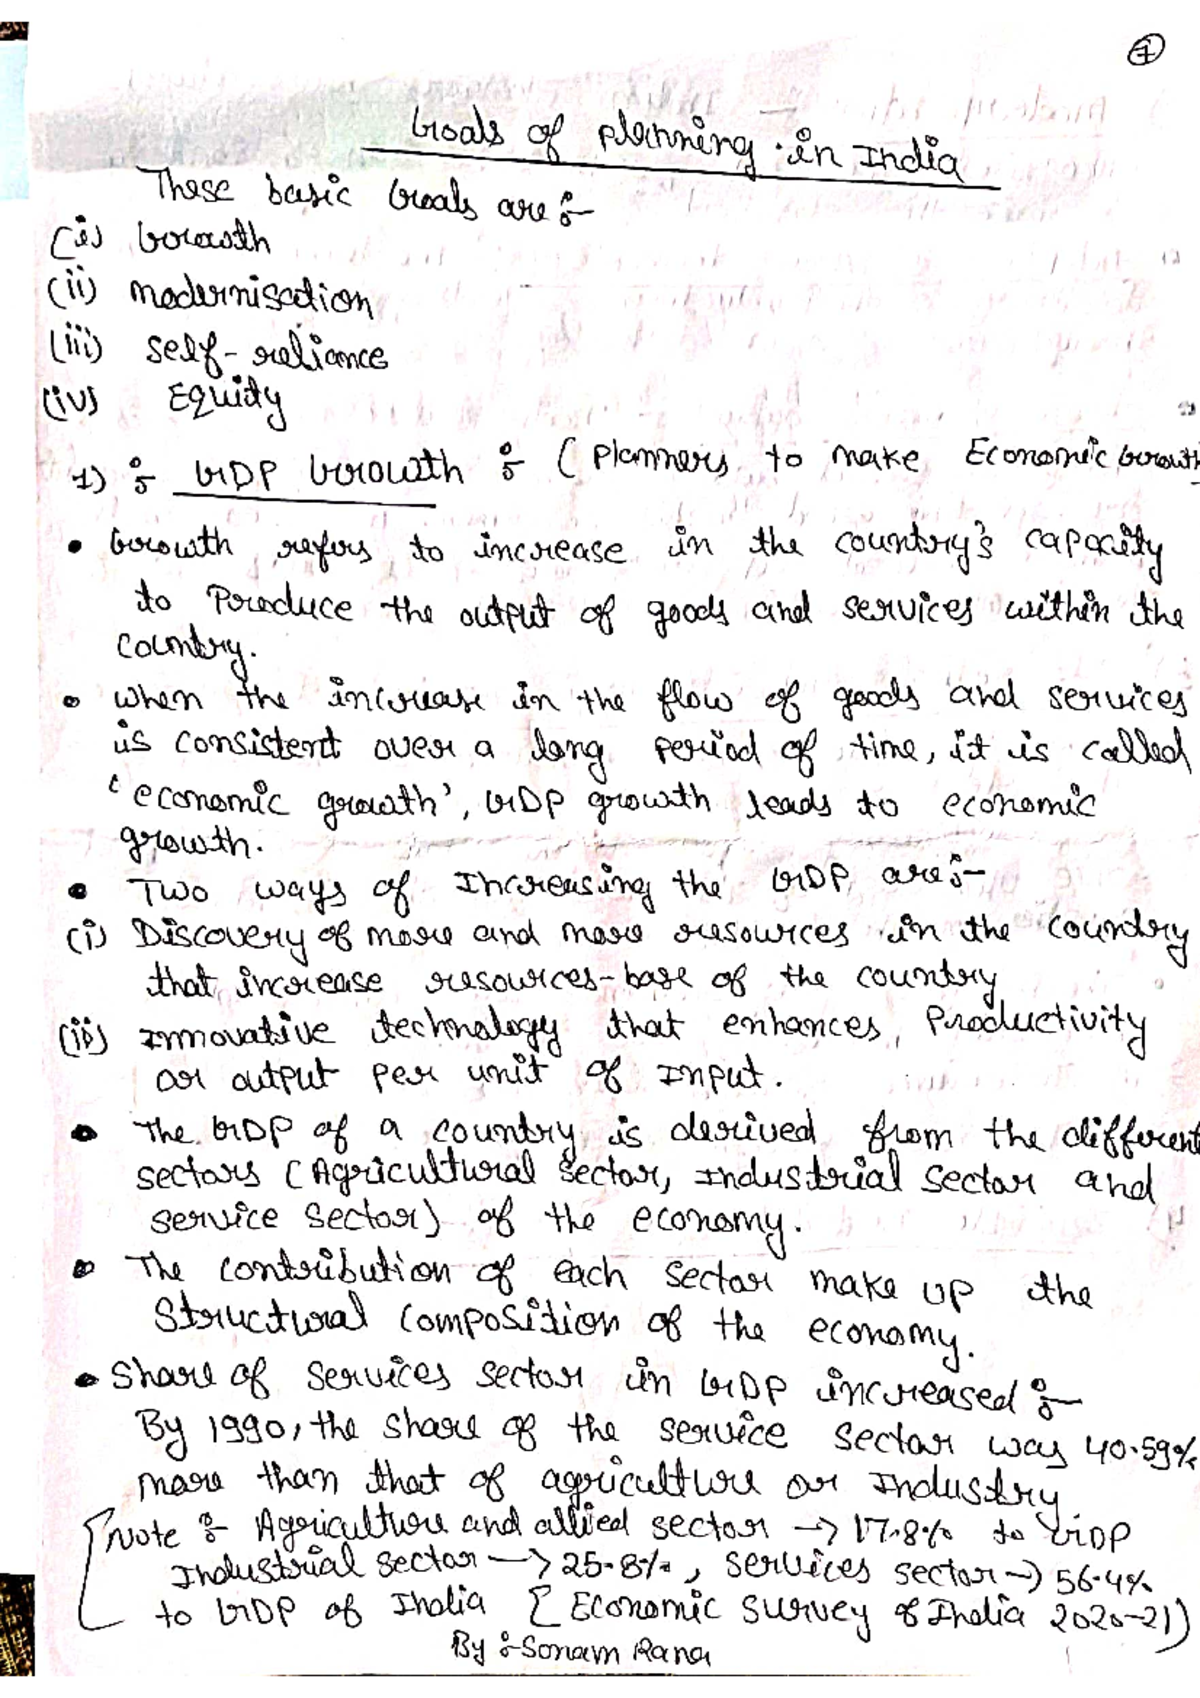 7
Goals of planning in India
These basic Goals are :-
(i) Growth
(ii) modernisation
(iii) Self-reliance
(iv) Equity
1) :- GDP Growth :- ( Planners to make Economic Growth
• Growth refers to increase in the country's capacity
to Produce the output of goods and services within the
country.
• when the increase in the flow of goods and services
is consistent over a long period of time, it is called
'economic growth', GDP growth leads to economic
growth.
• Two ways of Increasing the GDP are :-
(i) Discovery of more and more resources in the country
that increase resources-base of the country
(ii) Innovative technology that enhances Productivity
or output per unit of Input.
• The GDP of a country is derived from the different
sectors (Agricultural Sector, Industrial Sector and
service Sector) of the economy.
• The contribution of each Sector make up the
Structural Composition of the economy.
• Share of Services Sector in GDP increased :-
By 1990, the share of the service sector was 40.59%
more than that of agriculture or Industry
[Note :- Agriculture and allied sector → 17.8% to GDP
Industrial sector → 25.8%, services sector → 56.4%
to GDP of India [Economic Survey of India 2020-21)]
By :- Sonam Rana